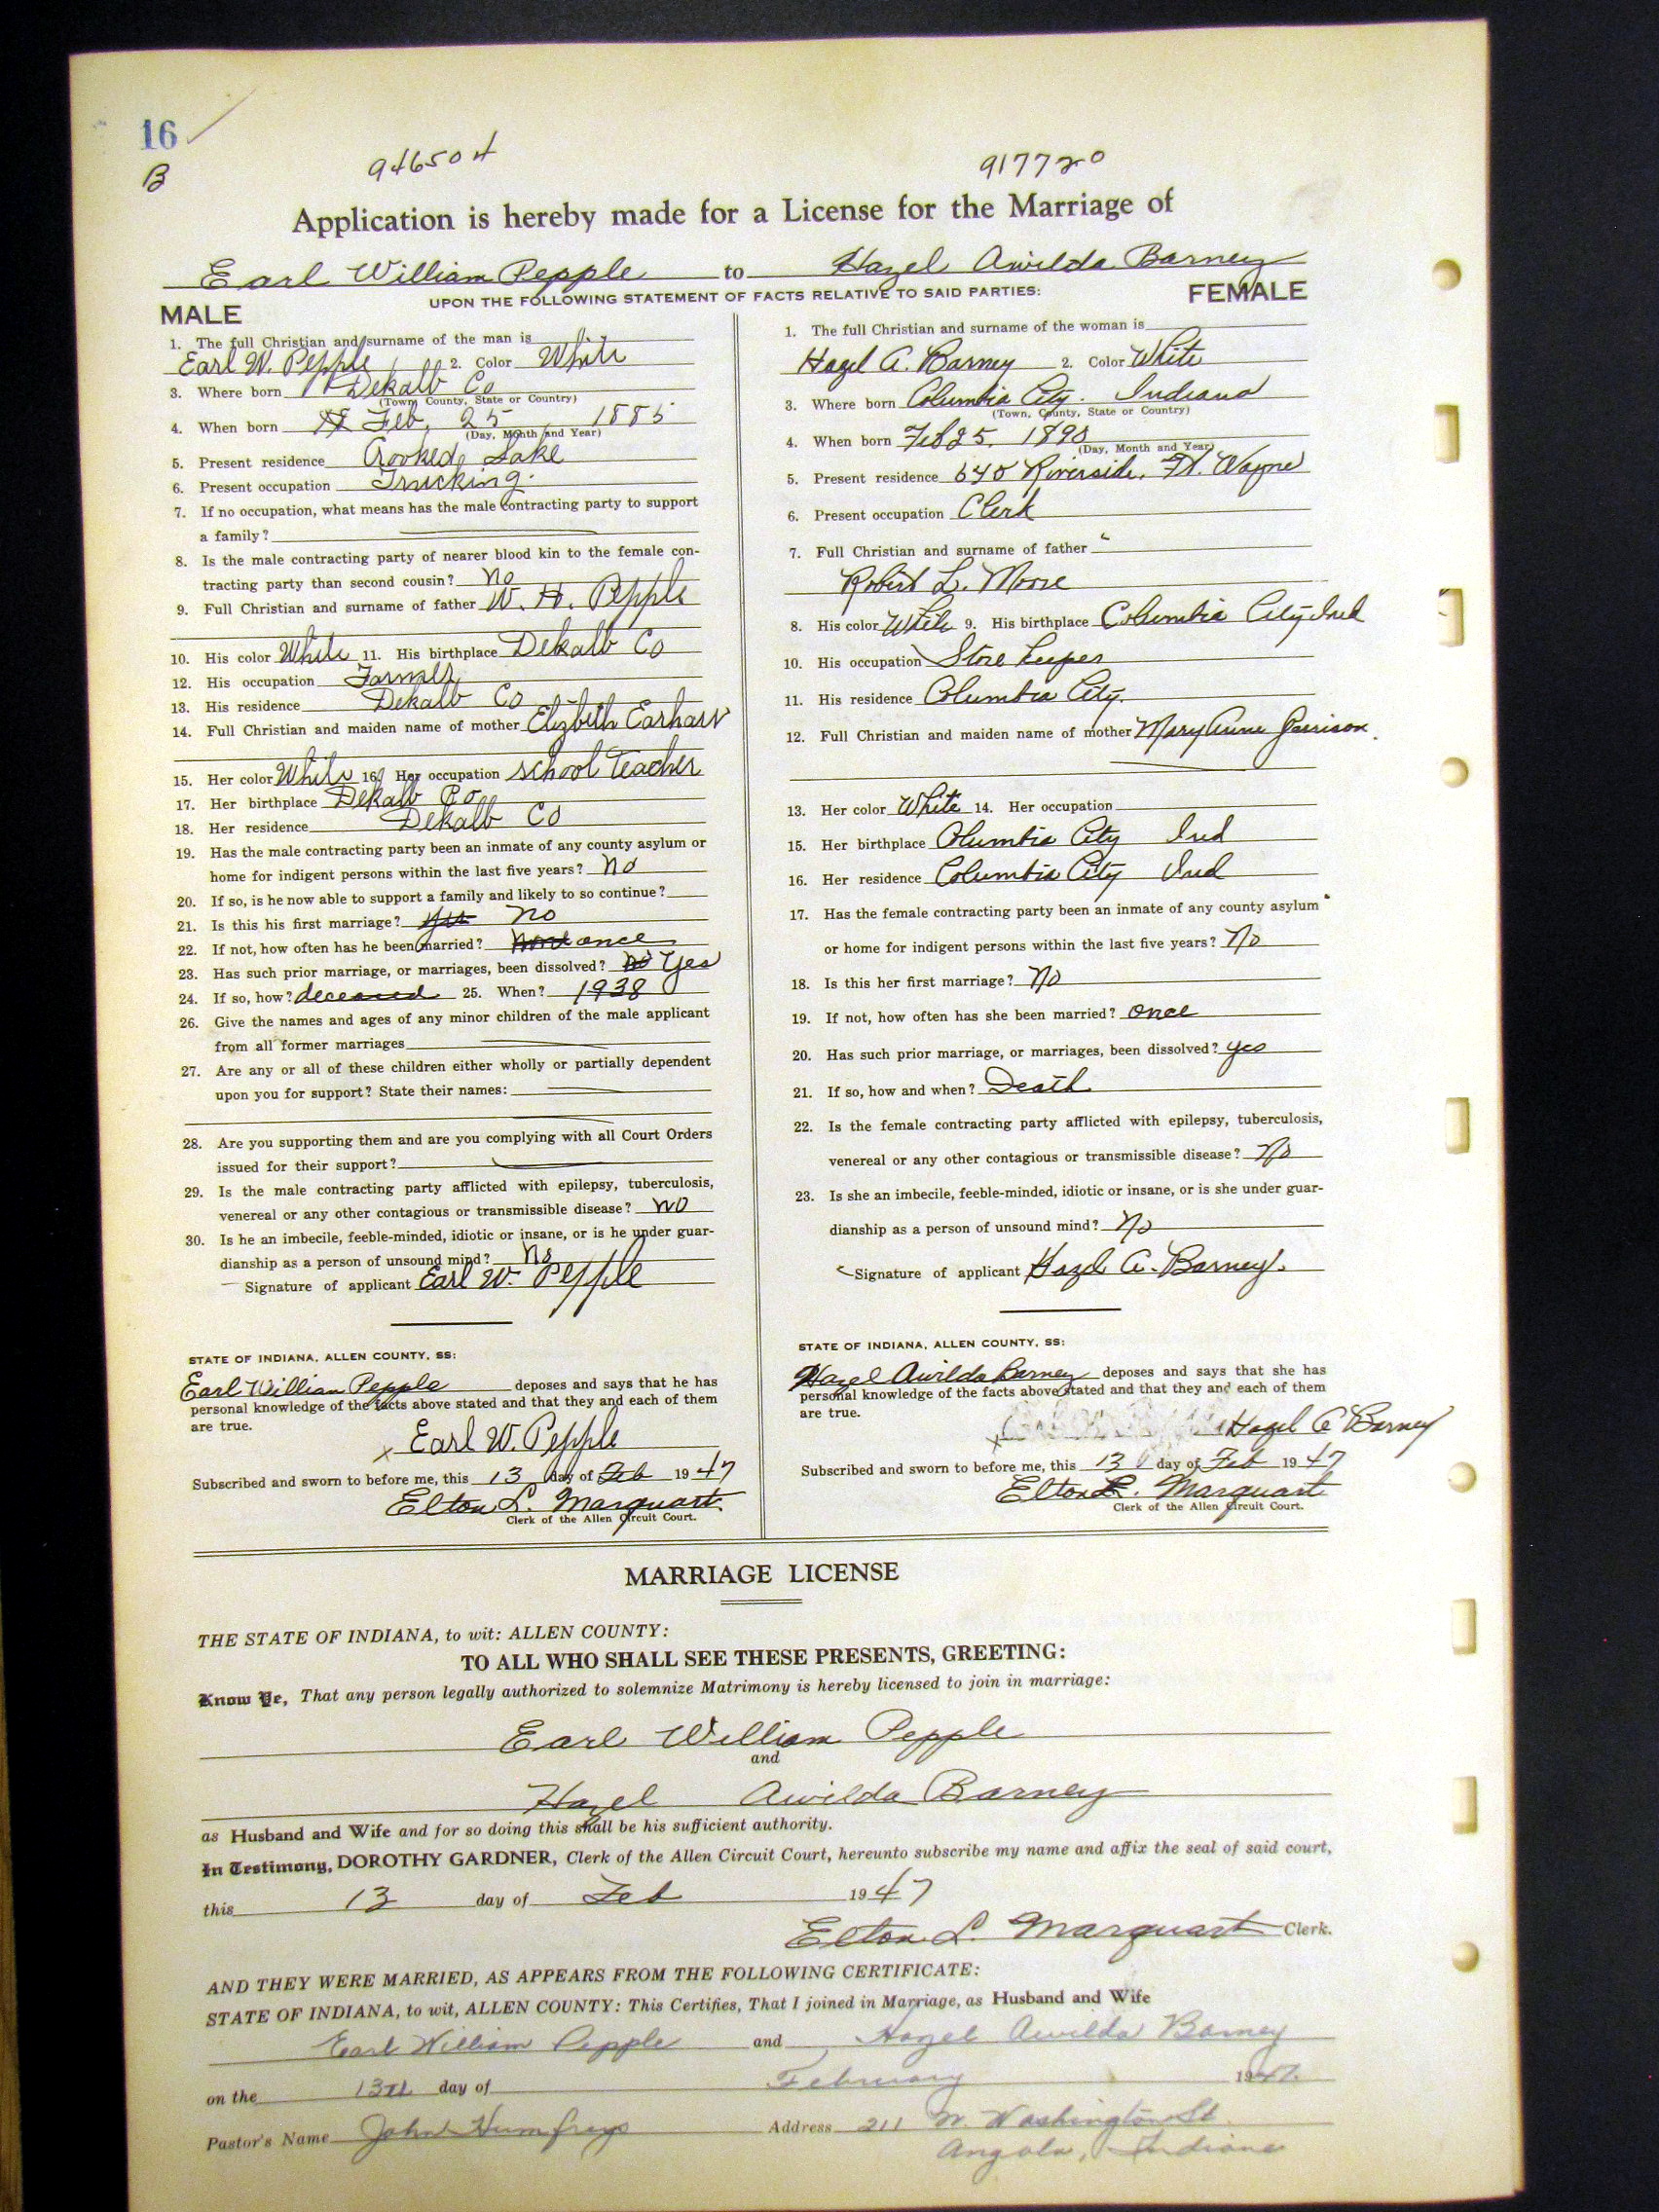 16
B
946504
917720
Application is hereby made for a License for the Marriage of
Earl William Pepple to Hazel Awilda Barney
UPON THE FOLLOWING STATEMENT OF FACTS RELATIVE TO SAID PARTIES:
MALE
1. The full Christian and surname of the man is
Earl W. Pepple 2. Color White
3. Where born Dekalb Co
(Town, County, State or Country)
4. When born Feb, 25 1885
(Day, Month and Year)
5. Present residence Crooked Lake
6. Present occupation Trucking.
7. If no occupation, what means has the male contracting party to support
a family?
8. Is the male contracting party of nearer blood kin to the female con-
tracting party than second cousin? no
9. Full Christian and surname of father W. H. Pepple
10. His color White 11. His birthplace Dekalb Co
12. His occupation Farmer
13. His residence Dekalb Co
14. Full Christian and maiden name of mother Elizbeth Earhart
15. Her color White 16. Her occupation school Teacher
17. Her birthplace Dekalb Co
18. Her residence Dekalb Co
19. Has the male contracting party been an inmate of any county asylum or
home for indigent persons within the last five years? no
20. If so, is he now able to support a family and likely to so continue?
21. Is this his first marriage? yes no
22. If not, how often has he been married? once
23. Has such prior marriage, or marriages, been dissolved? no Yes
24. If so, how? deceased 25. When? 1938
26. Give the names and ages of any minor children of the male applicant
from all former marriages
27. Are any or all of these children either wholly or partially dependent
upon you for support? State their names:
28. Are you supporting them and are you complying with all Court Orders
issued for their support?
29. Is the male contracting party afflicted with epilepsy, tuberculosis,
venereal or any other contagious or transmissible disease? NO
30. Is he an imbecile, feeble-minded, idiotic or insane, or is he under guar-
dianship as a person of unsound mind? No
Signature of applicant Earl W. Pepple
STATE OF INDIANA, ALLEN COUNTY, SS:
Earl William Pepple deposes and says that he has
personal knowledge of the facts above stated and that they and each of them
are true.
x Earl W. Pepple
Subscribed and sworn to before me, this 13 day of Feb 1947
Elton L. Marquart
Clerk of the Allen Circuit Court.
FEMALE
1. The full Christian and surname of the woman is
Hazel A. Barney 2. Color White
3. Where born Columbia City. Indiana
(Town, County, State or Country)
4. When born Feb 25, 1890
(Day, Month and Year)
5. Present residence 640 Riverside, Ft. Wayne
6. Present occupation Clerk
7. Full Christian and surname of father
Robert L. Moore
8. His color White 9. His birthplace Columbia City Ind
10. His occupation Store keeper
11. His residence Columbia City.
12. Full Christian and maiden name of mother Mary Anne Garrison.
13. Her color White 14. Her occupation
15. Her birthplace Columbia City Ind
16. Her residence Columbia City Ind
17. Has the female contracting party been an inmate of any county asylum
or home for indigent persons within the last five years? No
18. Is this her first marriage? No
19. If not, how often has she been married? once
20. Has such prior marriage, or marriages, been dissolved? yes
21. If so, how and when? Death
22. Is the female contracting party afflicted with epilepsy, tuberculosis,
venereal or any other contagious or transmissible disease? No
23. Is she an imbecile, feeble-minded, idiotic or insane, or is she under guar-
dianship as a person of unsound mind? No
Signature of applicant Hazel A. Barney.
STATE OF INDIANA, ALLEN COUNTY, SS:
Hazel Awilda Barney deposes and says that she has
personal knowledge of the facts above stated and that they and each of them
are true.
x Hazel A Barney
Subscribed and sworn to before me, this 13 day of Feb 1947
Elton L. Marquart
Clerk of the Allen Circuit Court.
MARRIAGE LICENSE
THE STATE OF INDIANA, to wit: ALLEN COUNTY:
TO ALL WHO SHALL SEE THESE PRESENTS, GREETING:
Know Ye, That any person legally authorized to solemnize Matrimony is hereby licensed to join in marriage:
Earl William Pepple
and
Hazel Awilda Barney
as Husband and Wife and for so doing this shall be his sufficient authority.
In Testimony, DOROTHY GARDNER, Clerk of the Allen Circuit Court, hereunto subscribe my name and affix the seal of said court,
this 13 day of Feb 1947
Elton L. Marquart Clerk.
AND THEY WERE MARRIED, AS APPEARS FROM THE FOLLOWING CERTIFICATE:
STATE OF INDIANA, to wit, ALLEN COUNTY: This Certifies, That I joined in Marriage, as Husband and Wife
Earl William Pepple and Hazel Awilda Barney
on the 13th day of February 1947.
Pastor's Name John Humfreys Address 211 W. Washington St.
Angola, Indiana